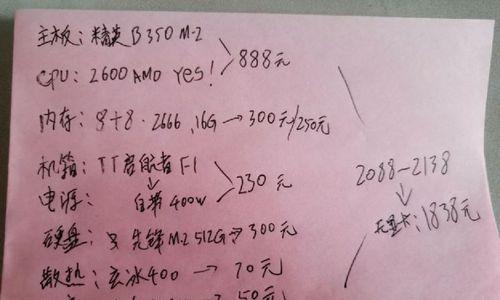 主板：精英B350M-2
CPU：2600 AMD yes！
888元
内存：8+8·2666，16G→300元/250元
机箱：TT启航者F1
电源：自带400w
230元
2088-2138
1838元
硬盘：先锋M.2 512G→300元
散热：玄冰400→70元
50元